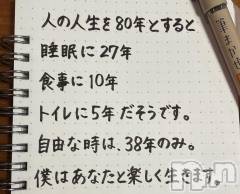 人の人生を80年とすると
睡眠に27年
食事に10年
トイレに5年だそうです。
自由な時は、38年のみ。
僕はあなたと楽しく生きます。
筆まか